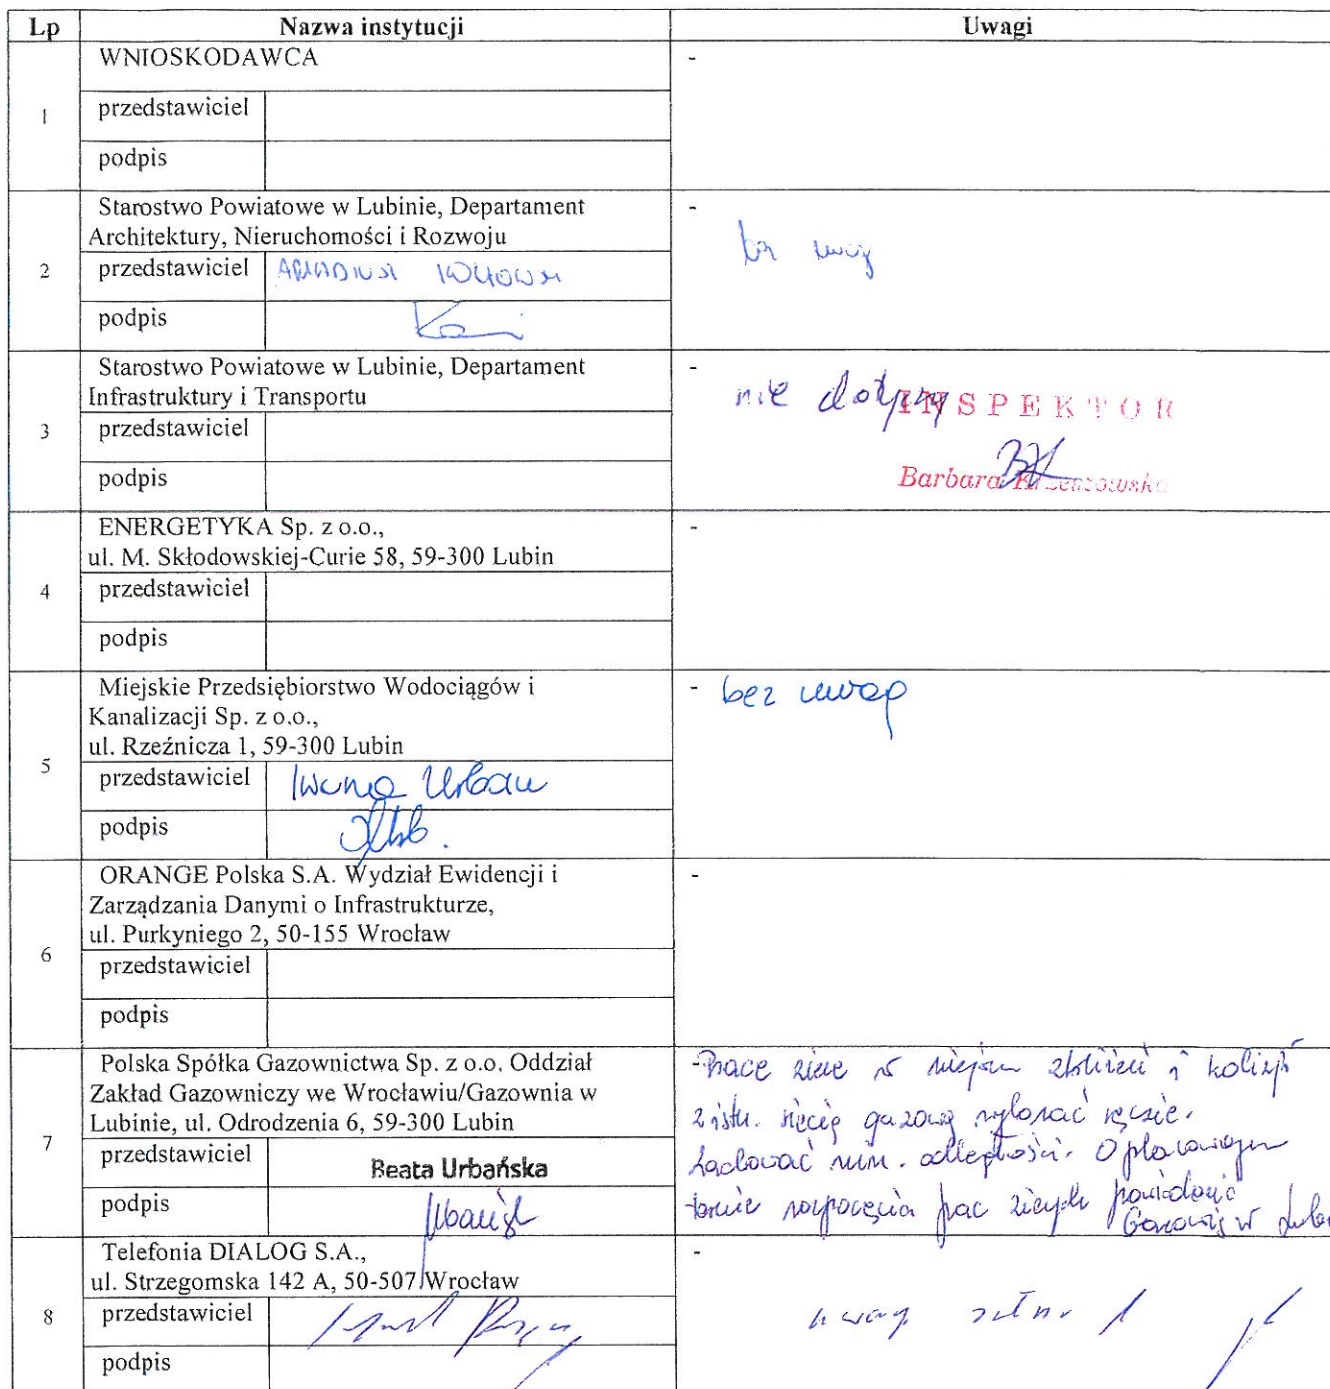 Lp Nazwa instytucji Uwagi
WNIOSKODAWCA -
1
przedstawiciel
podpis
Starostwo Powiatowe w Lubinie, Departament -
Architektury, Nieruchomości i Rozwoju
bez uwag
2 przedstawiciel
podpis
Starostwo Powiatowe w Lubinie, Departament -
Infrastruktury i Transportu
nie dotyczy INSPEKTOR
3 przedstawiciel
podpis
Barbara
ENERGETYKA Sp. z o.o., -
ul. M. Skłodowskiej-Curie 58, 59-300 Lubin
4 przedstawiciel
podpis
Miejskie Przedsiębiorstwo Wodociągów i - bez uwag
Kanalizacji Sp. z o.o.,
ul. Rzeźnicza 1, 59-300 Lubin
5 przedstawiciel Iwona Urban
podpis
ORANGE Polska S.A. Wydział Ewidencji i -
Zarządzania Danymi o Infrastrukturze,
ul. Purkyniego 2, 50-155 Wrocław
6 przedstawiciel
podpis
Polska Spółka Gazownictwa Sp. z o.o. Oddział
Zakład Gazowniczy we Wrocławiu/Gazownia w
Lubinie, ul. Odrodzenia 6, 59-300 Lubin
7 przedstawiciel Beata Urbańska
podpis
- Prace ziemne w miejscu zbliżeń i kolizji
z istn. siecią gazową wykonać ręcznie.
Zachować min. odległości. O planowanym
terminie rozpoczęcia prac ziemnych powiadomić
Gazownię w
Telefonia DIALOG S.A., -
ul. Strzegomska 142 A, 50-507 Wrocław
8 przedstawiciel
podpis
uwagi